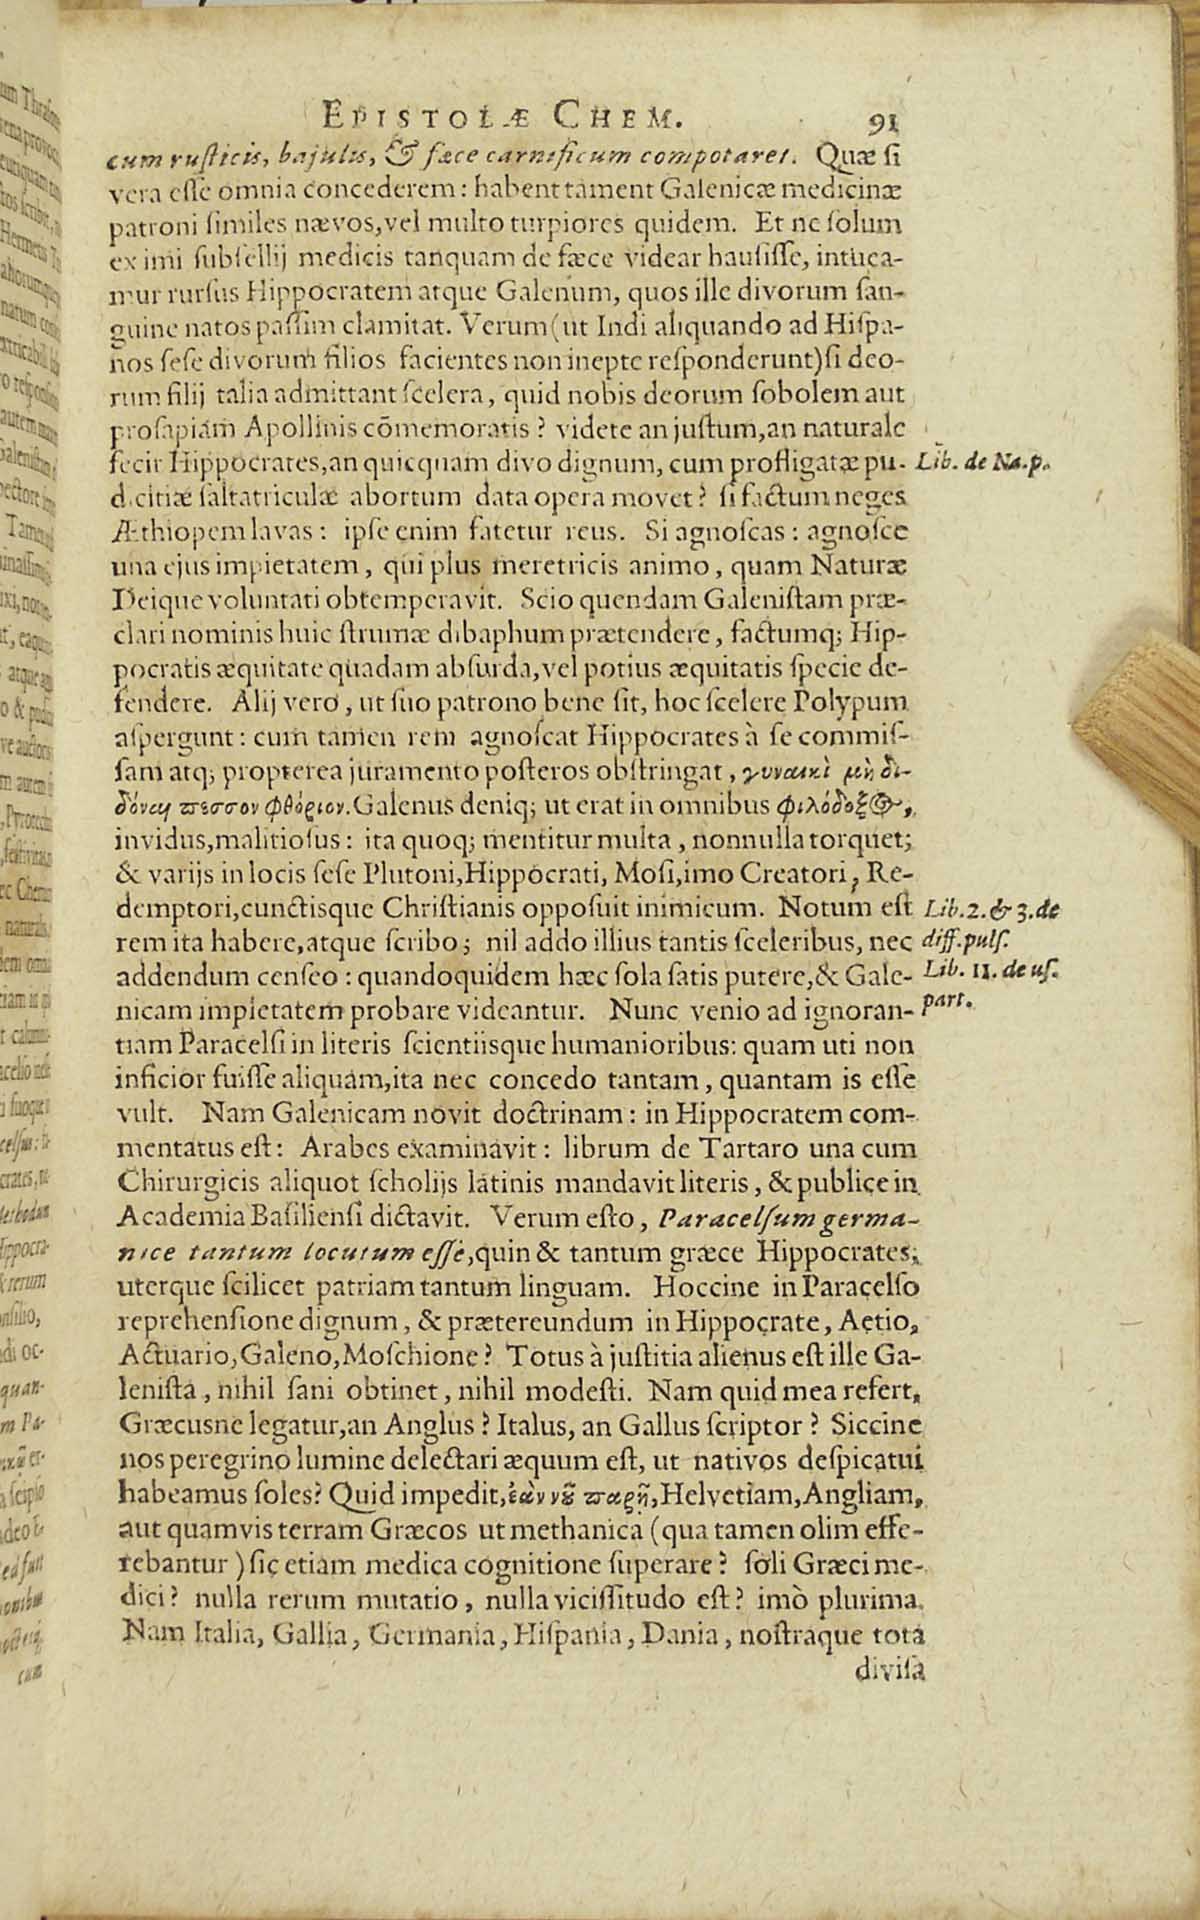 EPISTOLÆ CHEM. 91
cum rusticis, bajulis, & fæce carnificum compotaret. Quæ si
vera esse omnia concederem: habent tament Galenicæ medicinæ
patroni similes nævos, vel multo turpiores quidem. Et ne solum
ex imi subsellij medicis tanquam de fæce videar hausisse, intuca-
mur rursus Hippocratem atque Galenum, quos ille divorum san-
guine natos passim clamitat. Verum (ut Indi aliquando ad Hispa-
nos sese divorum filios facientes non inepte responderunt) si deo-
rum filij talia admittant scelera, quid nobis deorum sobolem aut
prosapiam Apollinis cõmemoratis? videte an justum, an naturale
fecit Hippocrates, an quicquam divo dignum, cum profligatæ pu-
Lib. de Na. p.
dicitiæ saltatriculæ abortum data opera movet? si factum neges
Æthiopem lavas: ipse enim fatetur reus. Si agnoscas: agnosce
una ejus impietatem, qui plus meretricis animo, quam Naturæ
Deique voluntati obtemperavit. Scio quendam Galenistam præ-
clari nominis huic strumæ dibaphum prætendere, factumq; Hip-
pocratis æquitate quadam absurda, vel potius æquitatis specie de-
fendere. Alij vero, ut suo patrono bene sit, hoc scelere Polypum
aspergunt: cum tamen rem agnoscat Hippocrates à se commis-
sam atq; propterea juramento posteros obstringat, γυναικὶ μὴ δι-
δόναι πεσσον φθόριον. Galenus deniq; ut erat in omnibus φιλόδοξος,
invidus, malitiosus: ita quoq; mentitur multa, nonnulla torquet;
& varijs in locis sese Plutoni, Hippocrati, Mosi, imo Creatori, Re-
demptori, cunctisque Christianis opposuit inimicum. Notum est
Lib. 2. & 3. de
rem ita habere, atque scribo; nil addo illius tantis sceleribus, nec
diff. puls.
addendum censeo: quandoquidem hæc sola satis putere, & Gale-
Lib. 11. de us.
nicam impietatem probare videantur. Nunc venio ad ignoran-
part.
tiam Paracelsi in literis scientiisque humanioribus: quam uti non
inficior fuisse aliquam, ita nec concedo tantam, quantam is esse
vult. Nam Galenicam novit doctrinam: in Hippocratem com-
mentatus est: Arabes examinavit: librum de Tartaro una cum
Chirurgicis aliquot scholijs latinis mandavit literis, & publice in
Academia Basiliensi dictavit. Verum esto, Paracelsum germa-
nice tantum locutum esse, quin & tantum græce Hippocrates;
uterque scilicet patriam tantum linguam. Hoccine in Paracelso
reprehensione dignum, & prætereundum in Hippocrate, Aetio,
Actuario, Galeno, Moschione? Totus à justitia alienus est ille Ga-
lenista, nihil sani obtinet, nihil modesti. Nam quid mea refert,
Græcusne legatur, an Anglus? Italus, an Gallus scriptor? Siccine
nos peregrino lumine delectari æquum est, ut nativos despicatui
habeamus soles? Quid impedit, ἐὰν νοῦ παρῇ, Helvetiam, Angliam,
aut quamvis terram Græcos ut methanica (qua tamen olim effe-
rebantur) sic etiam medica cognitione superare? soli Græci me-
dici? nulla rerum mutatio, nulla vicissitudo est? imò plurima.
Nam Italia, Gallia, Germania, Hispania, Dania, nostraque tota
divisa